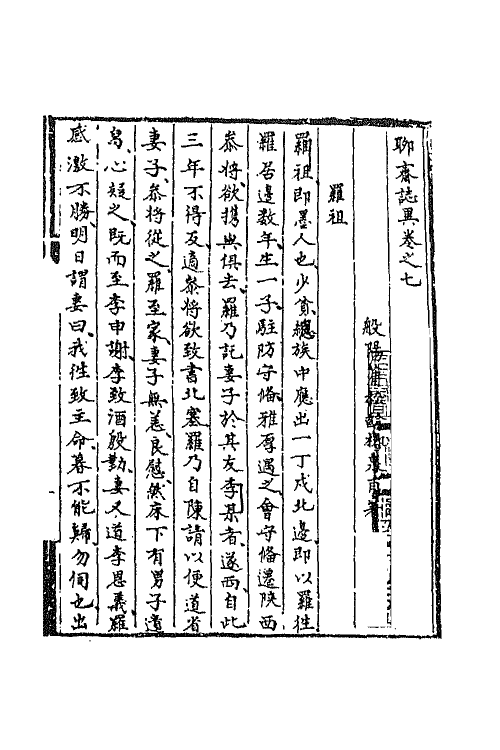 聊齋誌異卷之七
般陽蒲松齡柳泉甫著
羅祖
羅祖即墨人也少貧總族中應出一丁戍北邊即以羅徃
羅居邊数年生一子駐防守偹雅厚遇之會守偹遷陝西
叅将欲携與俱去羅乃託妻子於其友李某者遂西自此
三年不得反適叅将欲致書北塞羅乃自陳請以便道省
妻子叅将從之羅至家妻子無恙良慰然床下有男子遺
舄心疑之既而至李申謝李致酒殷勤妻又道李恩義羅
感激不勝明日謂妻曰我徃致主命暮不能歸勿伺也出